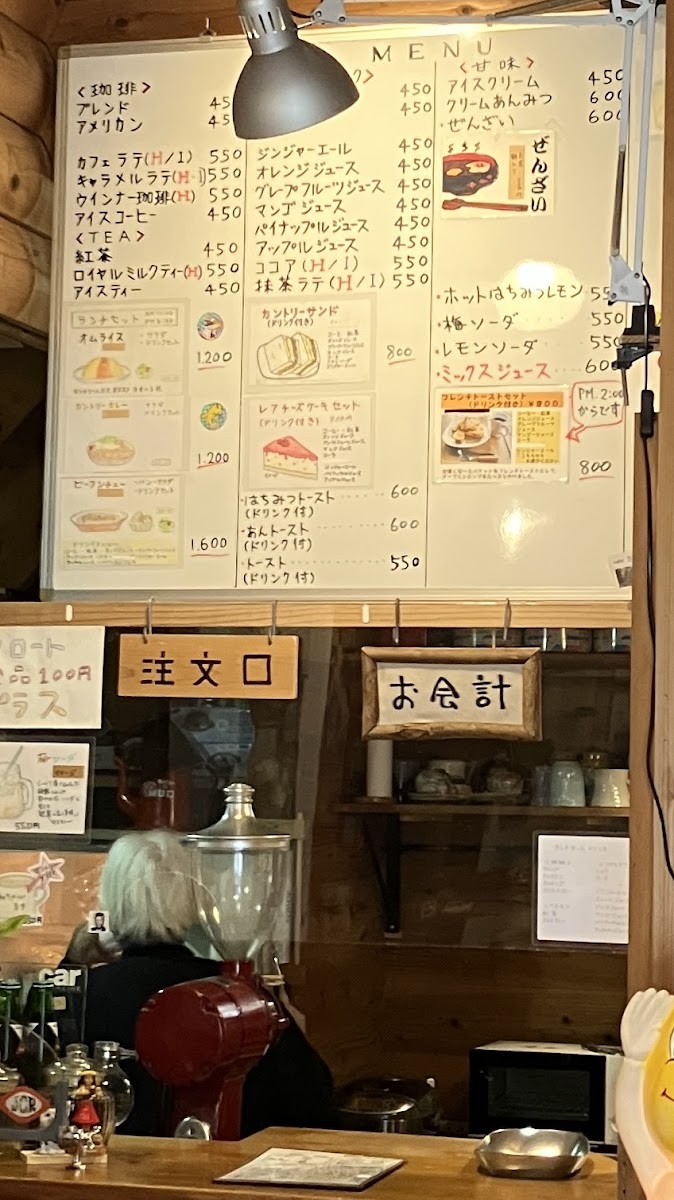 MENU
<珈琲>
ブレンド 450
アメリカン 45
カフェラテ(H/I) 550
キャラメルラテ(H・I) 550
ウインナー珈琲(H) 550
アイスコーヒー 450
<TEA>
紅茶 450
ロイヤルミルクティー(H) 550
アイスティー 450
ランチセット
オムライス
・サラダ
・ドリンクセット
1.200
カントリーカレー
サラダ
・ドリンクセット
1.200
ビーフシチュー
・パン・サラダ
・ドリンクセット
1.600
ク>
450
450
ジンジャーエール 450
オレンジジュース 450
グレープフルーツジュース 450
マンゴジュース 450
パイナップルジュース 450
アップルジュース 450
ココア(H/I) 550
抹茶ラテ(H/I) 550
カントリーサンド
(ドリンク付き)
800
レアチーズケーキセット
(ドリンク付き)
・はちみつトースト 600
(ドリンク付)
・あんトースト 600
(ドリンク付)
・トースト 550
(ドリンク付)
<甘味>
アイスクリーム 450
クリームあんみつ 600
・ぜんざい 600
ぜんざい
・ホットはちみつレモン 55
・梅ソーダ 550
・レモンソーダ 550
・ミックスジュース 600
フレンチトーストセット
(ドリンク付き) ¥800
PM.2:00
からです
800
ロート
品100円
プラス
注文口
お会計
550円
car